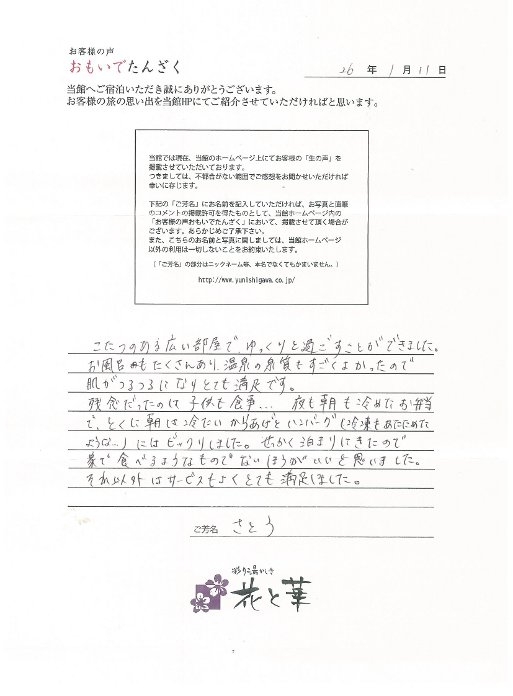 お客様の声
おもいでたんざく
26 年 1 月 11 日
当館へご宿泊いただき誠にありがとうございます。
お客様の旅の思い出を当館HPにてご紹介させていただければと思います。
当館では現在、当館のホームページ上にてお客様の「生の声」を
掲載させていただいております。
つきましては、不都合がない範囲でご感想をお聞かせいただければ
幸いに存じます。
下記の「ご芳名」にお名前を記入していただければ、お写真と直筆
のコメントの掲載許可を得たものとして、当館ホームページ内の
「お客様の声おもいでたんざく」において、掲載させて頂く場合が
ございます。あらかじめご了承下さい。
また、こちらのお名前と写真に関しましては、当館ホームページ
以外の利用は一切しないことをお約束いたします。
(「ご芳名」の部分はニックネーム等、本名でなくてもかまいません。)
http://www.yunishigawa.co.jp/
こたつのある広い部屋で、ゆっくりと過ごすことができました。
お風呂もたくさんあり、温泉の泉質もすごくよかったので
肌がつるつるになりとても満足です。
残念だったのは子供も食事... 夜も朝も冷めたお弁当
で、とくに朝は冷たいからあげとハンバーグ(冷凍をあたためた
ような…)にはビックリしました。せっかく泊まりにきたので
家で食べるようなものでないほうがいいと思いました。
それ以外はサービスもよくとても満足しました。
ご芳名 さとう
彩り湯かしき
花と華